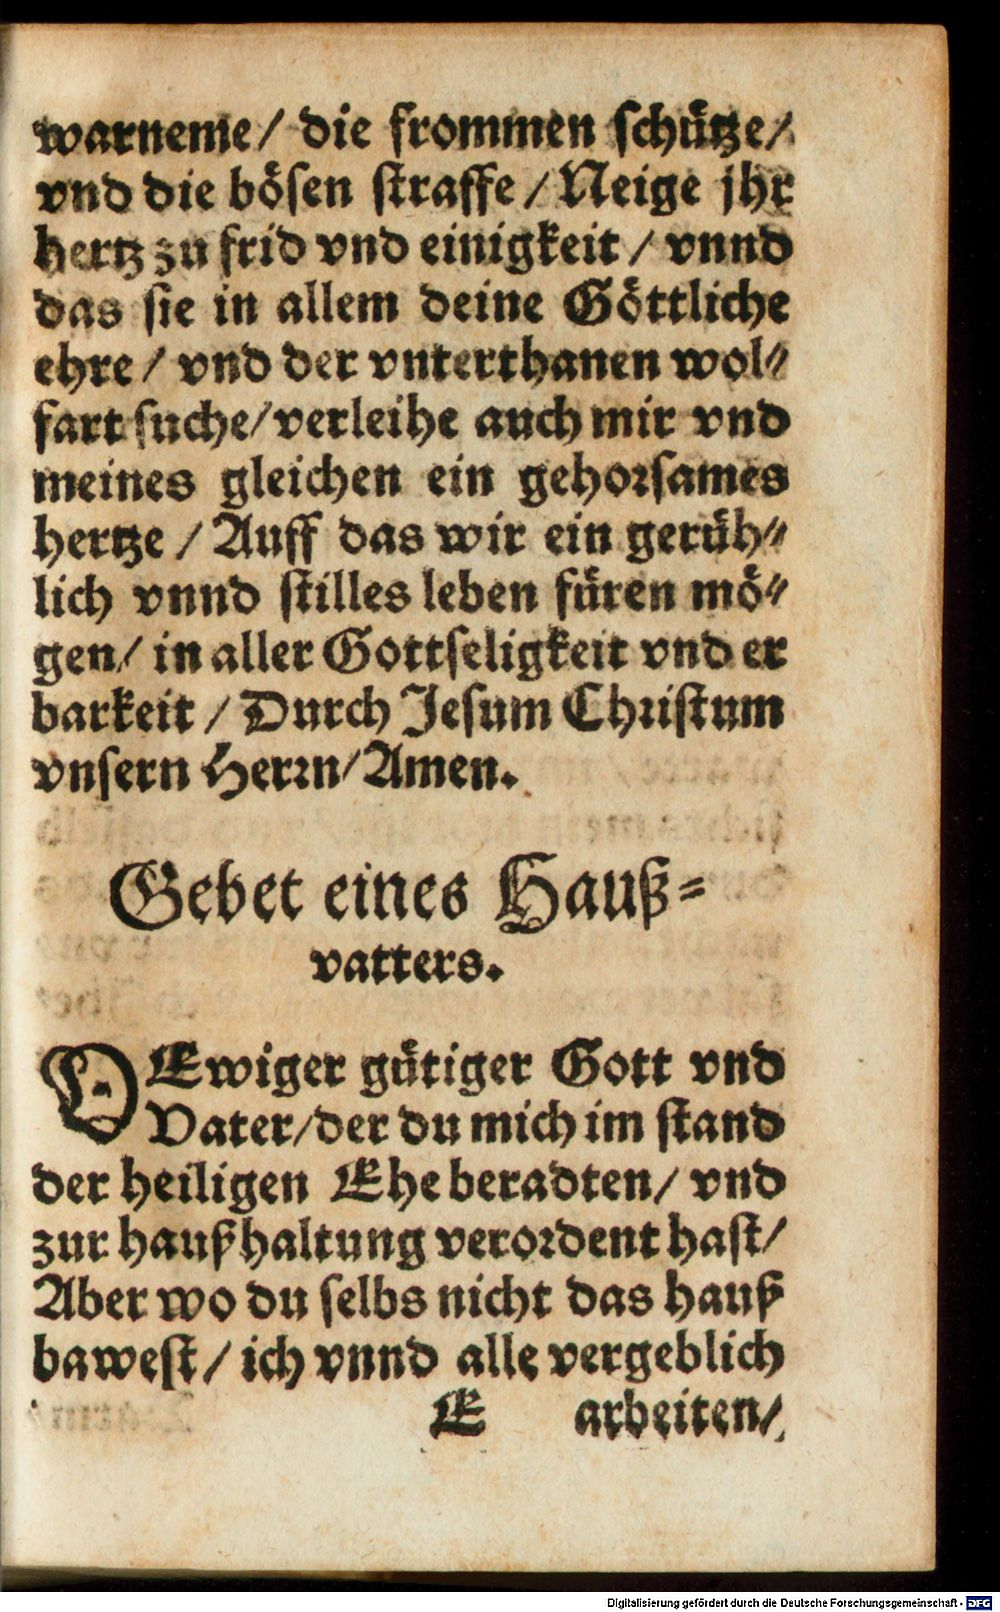 warneme/ die frommen schütze/
vnd die bösen straffe/ Neige jhr
hertz zu frid vnd einigkeit/ vnnd
das sie in allem deine Göttliche
ehre/ vnd der vnterthanen wol⸗
fart suche/ verleihe auch mir vnd
meines gleichen ein gehorsames
hertze/ Auff das wir ein gerüh⸗
lich vnnd stilles leben füren mö⸗
gen/ in aller Gottseligkeit vnd er
barkeit/ Durch Jesum Christum
vnsern Herrn/ Amen.
Gebet eines Hauß⸗
vatters.
O Ewiger gütiger Gott vnd
Vater/ der du mich im stand
der heiligen Ehe beradten/ vnd
zur haußhaltung verordent hast/
Aber wo du selbs nicht das hauß
bawest/ ich vnnd alle vergeblich
E arbeiten/
Digitalisierung gefördert durch die Deutsche Forschungsgemeinschaft - DFG